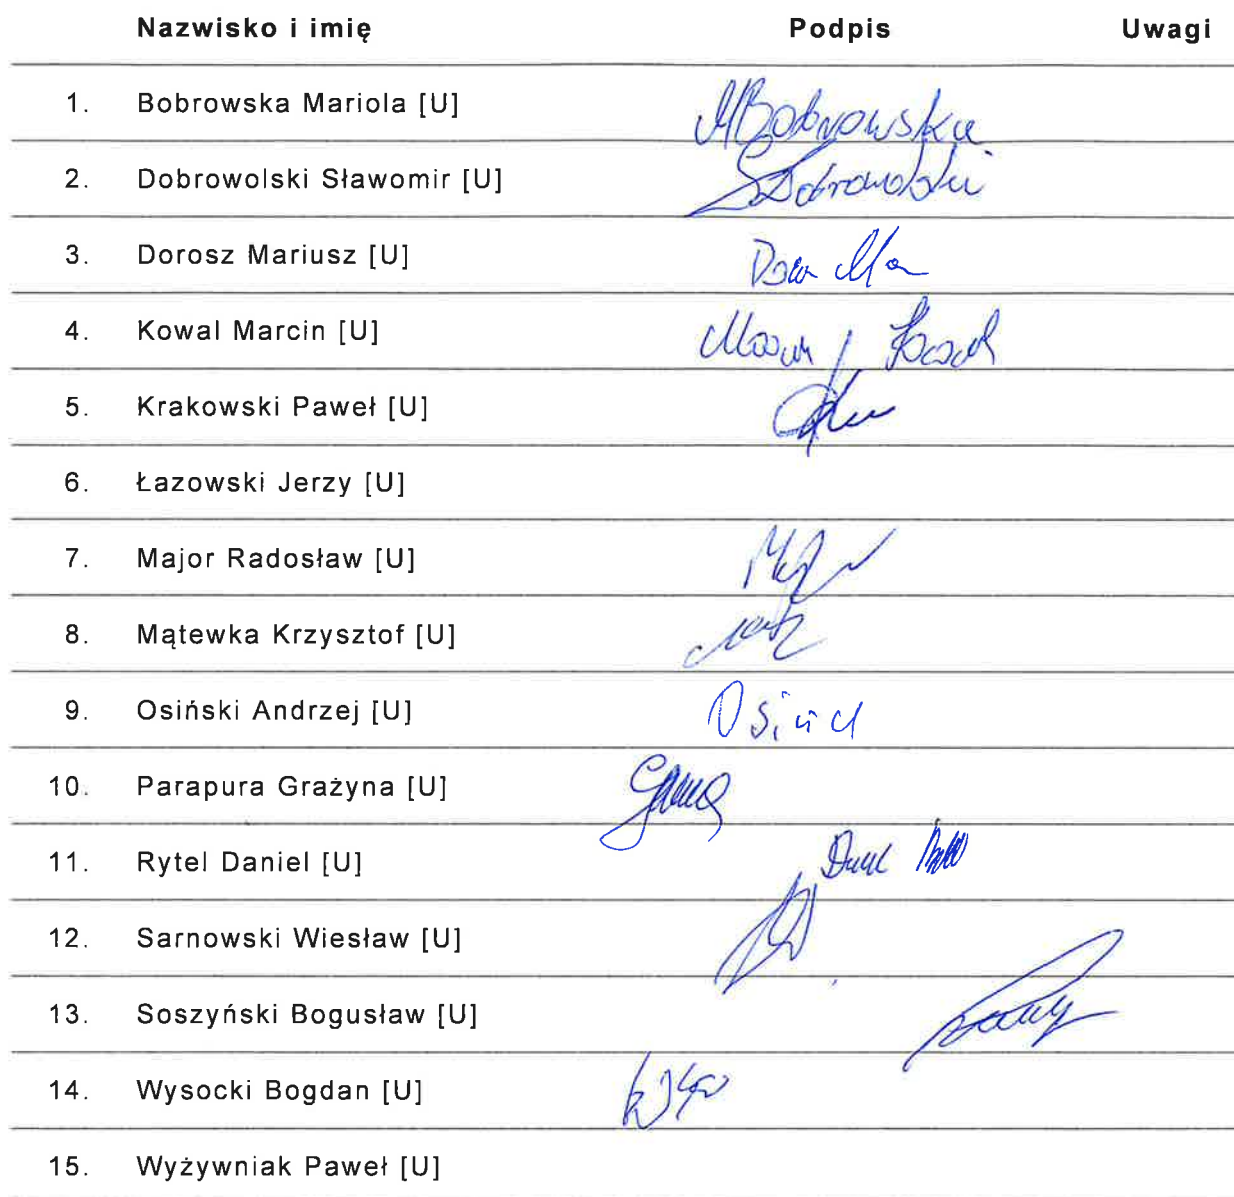 Nazwisko i imię Podpis Uwagi
1. Bobrowska Mariola [U] MBobrowska
2. Dobrowolski Sławomir [U] SDobrowolski
3. Dorosz Mariusz [U]
4. Kowal Marcin [U] Marcin Kowal
5. Krakowski Paweł [U]
6. Łazowski Jerzy [U]
7. Major Radosław [U]
8. Mątewka Krzysztof [U]
9. Osiński Andrzej [U]
10. Parapura Grażyna [U]
11. Rytel Daniel [U]
12. Sarnowski Wiesław [U]
13. Soszyński Bogusław [U]
14. Wysocki Bogdan [U]
15. Wyżywniak Paweł [U]